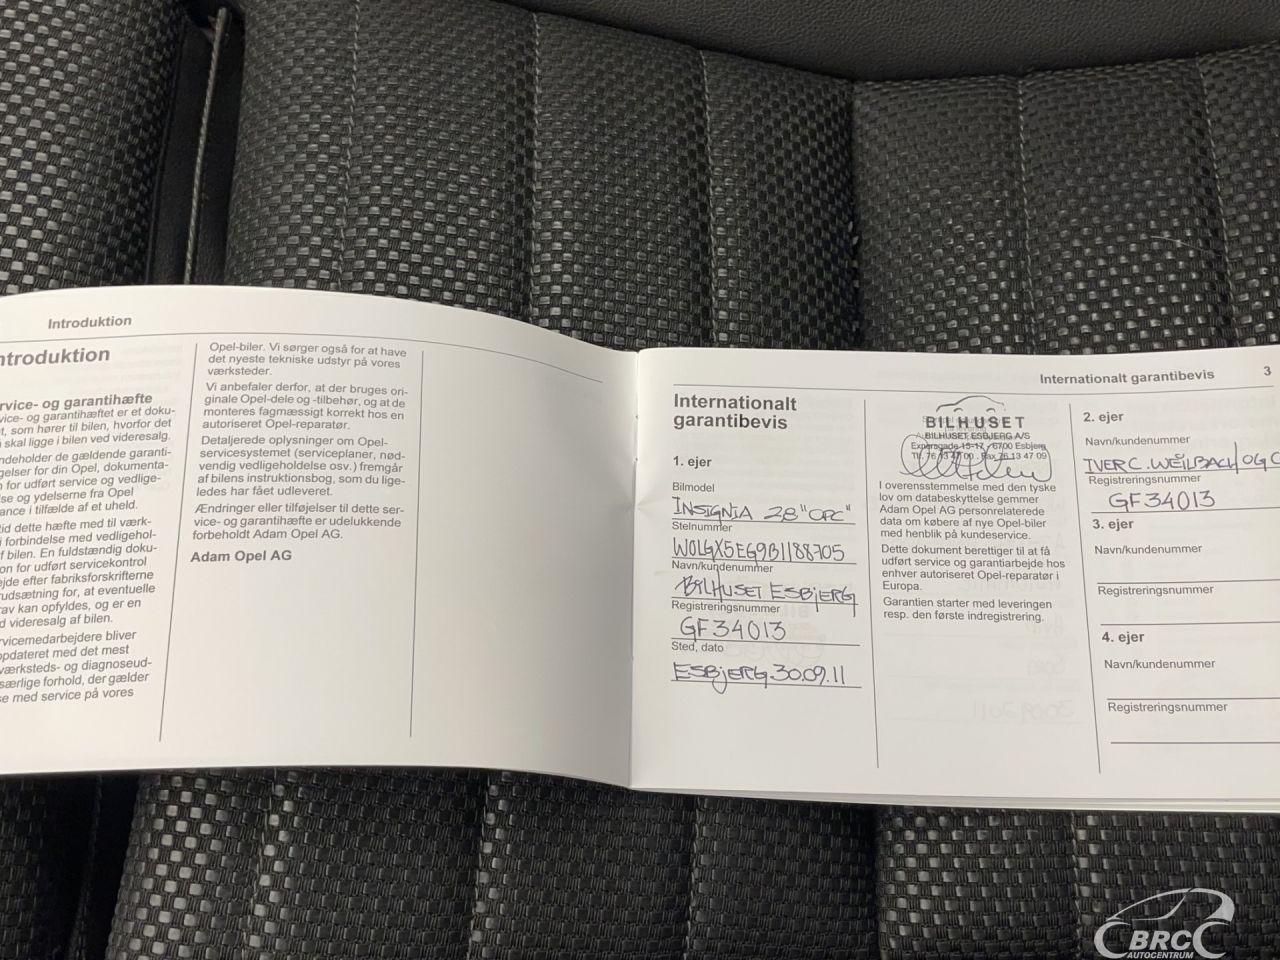 Introduktion
ntroduktion
rvice- og garantihæfte
vice- og garantihæftet er et doku-
t, som hører til bilen, hvorfor det
skal ligge i bilen ved videresalg.
ndeholder de gældende garanti-
gelser for din Opel, dokumenta-
n for udført service og vedlige-
lse og ydelserne fra Opel
ance i tilfælde af et uheld.
tid dette hæfte med til værk-
i forbindelse med vedligehol-
f bilen. En fuldstændig doku-
on for udført servicekontrol
ejde efter fabriksforskrifterne
rudsætning for, at eventuelle
rav kan opfyldes, og er en
d videresalg af bilen.
rvicemedarbejdere bliver
opdateret med det mest
værksteds- og diagnoseud-
særlige forhold, der gælder
se med service på vores
Opel-biler. Vi sørger også for at have
det nyeste tekniske udstyr på vores
værksteder.
Vi anbefaler derfor, at der bruges ori-
ginale Opel-dele og -tilbehør, og at de
monteres fagmæssigt korrekt hos en
autoriseret Opel-reparatør.
Detaljerede oplysninger om Opel-
servicesystemet (serviceplaner, nød-
vendig vedligeholdelse osv.) fremgår
af bilens instruktionsbog, som du lige-
ledes har fået udleveret.
Ændringer eller tilføjelser til dette ser-
vice- og garantihæfte er udelukkende
forbeholdt Adam Opel AG.
Adam Opel AG
Internationalt garantibevis 3
Internationalt
garantibevis
1. ejer
Bilmodel
INSIGNIA 28 "OPC"
Stelnummer
W0LGX5EG9B1188705
Navn/kundenummer
BILHUSET ESBJERG
Registreringsnummer
GF34013
Sted, dato
ESBJERG 30.09.11
BILHUSET
BILHUSET ESBJERG A/S
Expersgade 15-17 6700 Esbjerg
Tlf. 76 13 47 00 Fax 76 13 47 09
I overensstemmelse med den tyske
lov om databeskyttelse gemmer
Adam Opel AG personrelaterede
data om købere af nye Opel-biler
med henblik på kundeservice.
Dette dokument berettiger til at få
udført service og garantiarbejde hos
enhver autoriseret Opel-reparatør i
Europa.
Garantien starter med leveringen
resp. den første indregistrering.
2. ejer
Navn/kundenummer
IVER C. WEILBACH OG C
Registreringsnummer
GF34013
3. ejer
Navn/kundenummer
Registreringsnummer
4. ejer
Navn/kundenummer
Registreringsnummer
BRC
AUTOCENTRUM